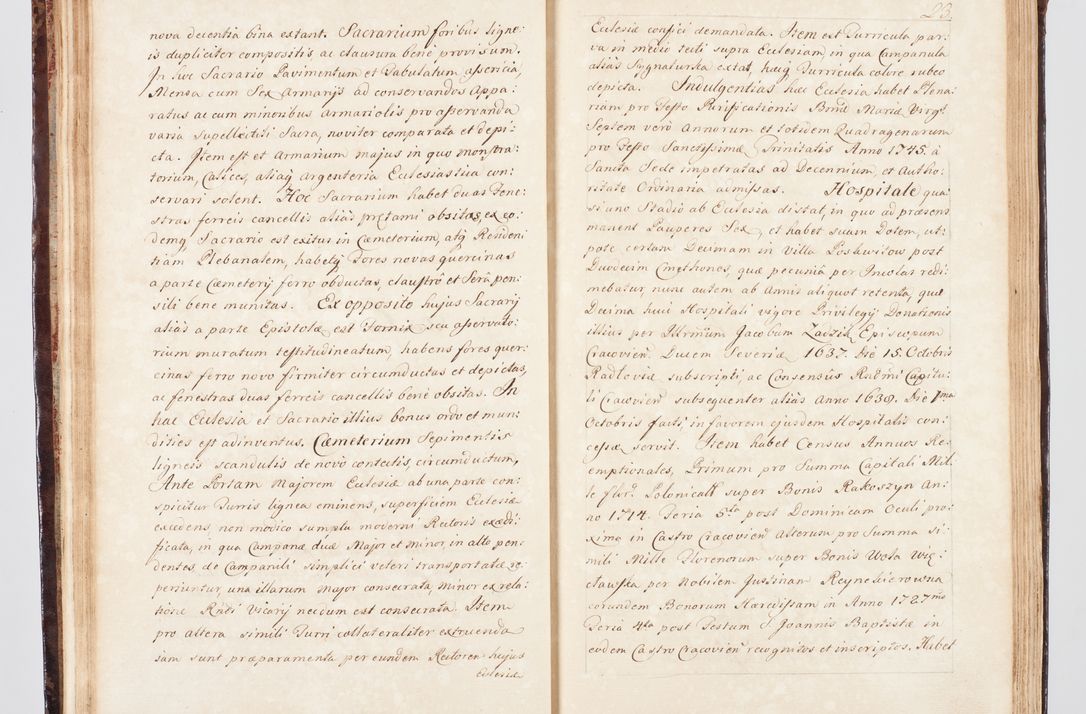 nova decentia bina extant. Sacrarium foribus ligne-
is dupliciter compositis ac clausura bene provisum.
In hoc Sacrario Pavimentum et Tabulatum asseritia,
Mensa cum Sex Armarijs ad conservandos Appa-
ratus ac cum minoribus armariolis pro asservanda
varia supellectili Sacra, noviter comparata et depi-
cta. Item est et Armarium majus in quo monstra-
torium, Calices, aliaq argenteria Ecclesiastica con-
servari solent. Hoc Sacrarium habet duas Fene-
stras ferreis cancellis alias prętami obsitas, ex eo-
demq Sacrario est exitus in Cæmeterium, atq Residen-
tiam Plebanalem, habetq Fores novas quercinas
a parte Cæmeterij ferro obductas, claustro et Sera pen-
sili bene munitas. Ex opposito hujus Sacrarij
alias a parte Epistolæ est Fornix seu asservato-
rium muratum testitudineatum, habens fores quer-
cinas ferro novo firmiter circumductas et depictas,
ac fenestras duas ferreis cancellis bene obsitas. In
hac Ecclesia et Sacrario illius bonus ordo et mun-
dities est adinventus. Cæmeterium Sepimentis
ligneis scandulis de novo contectis, circumductum,
Ante Portam Majorem Ecclesiæ ab una parte con-
spicitur Turris lignea eminens, superficiem Ecclesiæ
excedens, non modico sumptu moderni Rectoris exædi-
ficata, in qua Campanæ duæ Major et minor, in alto pen-
dentes, de Campanili simplici veteri transportatæ re-
periuntur, una illarum major consecrata, minor ex rela-
tione Rndi Vicarij necdum est consecrata. Item
pro altera simili Turri collateraliter extruenda
jam sunt præparamenta per eundem Rectorem hujus
Ecclesiæ
23.
Ecclesiæ confici demandata. Item est Turricula par-
va in medio tecti supra Ecclesiam, in qua Campanula
alias Sygnaturka extat, hæcq Turricula colore rubeo
depicta. Indulgentias hæc Ecclesia habet Plena-
riam pro Festo Purificationis Bmæ Mariæ Virgs
Septem vero Annorum et totidem Quadragenarum
pro Festo Sanctissimæ Trinitatis Anno 1745. à
Sancta Sede impetratas ad Decennium, et Autho-
ritate Ordinaria admissas. Hospitale qua-
si uno Stadio ab Ecclesia distat, in quo ad præsens
manent Pauperes Sex, et habet suam Dotem, ut-
pote certam Decimam in Villa Poskwitow post
Duodecim Cmethones, quæ pecunia per Incolas redi-
mebatur, nunc autem ab Annis aliquot retenta, quæ
Decima huic Hospitali vigore Privilegij Donationis
illius per Illrmum Jacobum Zadzik Episcopum
Cracovien Ducem Severiæ 1637. Die 15. Octobris
Radloviæ subscripti, ac Consensus Rndmi Capitu-
li Cracovien subsequenter alias Anno 1639. Die 1ma
Octobris facti, in favorem ejusdem Hospitalis con-
cessæ servit. Item habet Census Annuos Re-
emptionales, Primum pro Summa Capitali Mil-
le flor. Polonicall super Bonis Rakoszyn An-
no 1714. Feria 5ta post Dominicam Oculi pro-
xima in Castro Cracovien Alterum pro Summa si-
mili Mille Florenorum super Bonis Wola Wię-
cławska per Nobilem Justinam Reynekierowna
eorundem Bonorum Hæredissam in Anno 1727mo
Feria 4ta post Festum S Joannis Baptistæ in
eodem Castro Cracovien recognitos et inscriptos. Habet